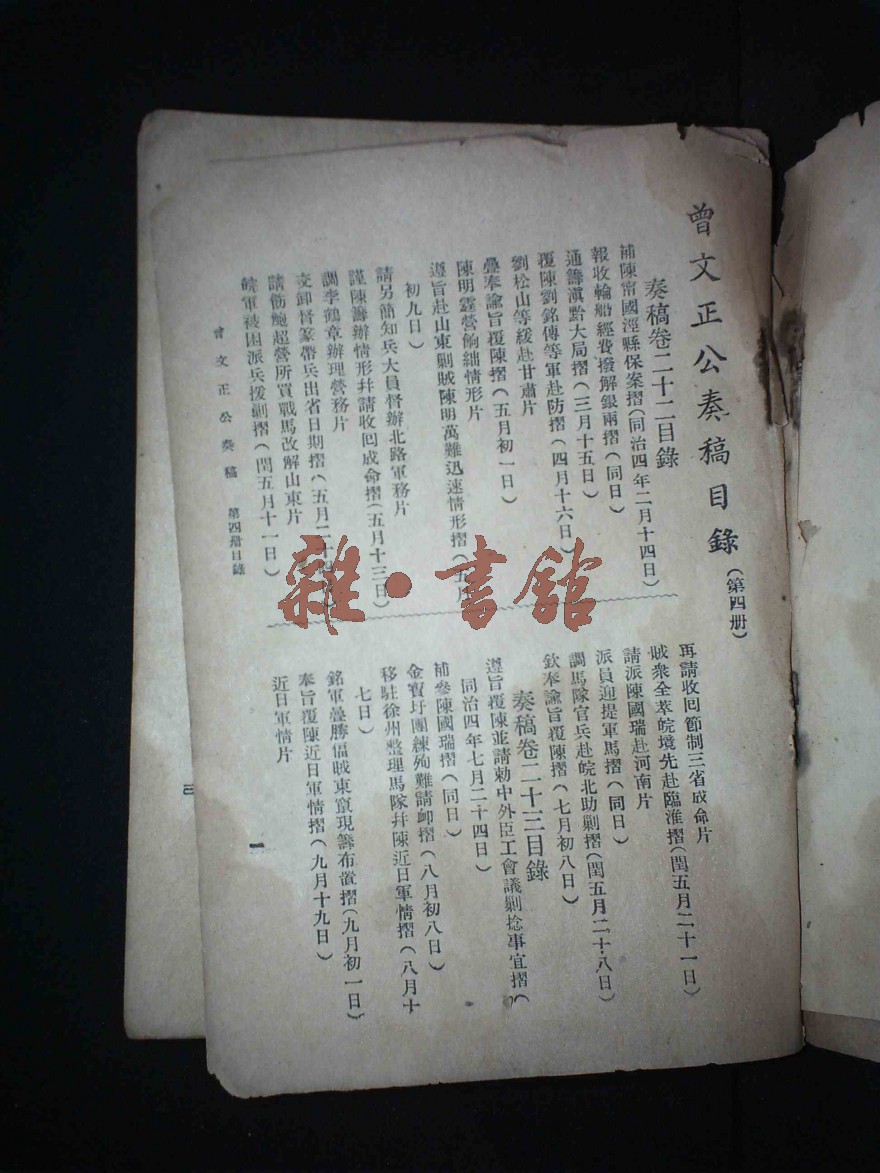 曾文正公奏稿目錄(第四册)
奏稿卷二十二目錄
補陳甯國涇縣保案摺(同治四年二月十四日)
報收輪船經費撥解銀兩摺(同日)
通籌滇黔大局摺(三月十五日)
覆陳劉銘傳等軍赴防摺(四月十六日)
劉松山等緩赴甘肅片
疊奉諭旨覆陳摺(五月初一日)
陳明霆營餉絀情形片
遵旨赴山東剿賊陳明萬難迅速情形摺(五月
初九日)
請另簡知兵大員督辦北路軍務片
謹陳籌辦情形幷請收回成命摺(五月十三日)
調李鶴章辦理營務片
交卸督篆帶兵出省日期摺(五月二十四日)
請飭鮑超營所買戰馬改解山東片
皖軍被困派兵援剿摺(閏五月十一日)
再請收回節制三省成命片
賊衆全萃皖境先赴臨淮摺(閏五月二十一日)
請派陳國瑞赴河南片
派員迎提軍馬摺(同日)
調馬隊官兵赴皖北助剿摺(閏五月二十八日)
欽奉諭旨覆陳摺(七月初八日)
奏稿卷二十三目錄
遵旨覆陳並請勅中外臣工會議剿捻事宜摺(
同治四年七月二十四日)
補參陳國瑞摺(同日)
金寶圩團練殉難請卹摺(八月初八日)
移駐徐州整理馬隊幷陳近日軍情摺(八月十
七日)
銘軍疊勝偪賊東竄現籌布置摺(九月初一日)
奉旨覆陳近日軍情摺(九月十九日)
近日軍情片
曾文正公奏稿 第四册目錄
一
三
雜·書館